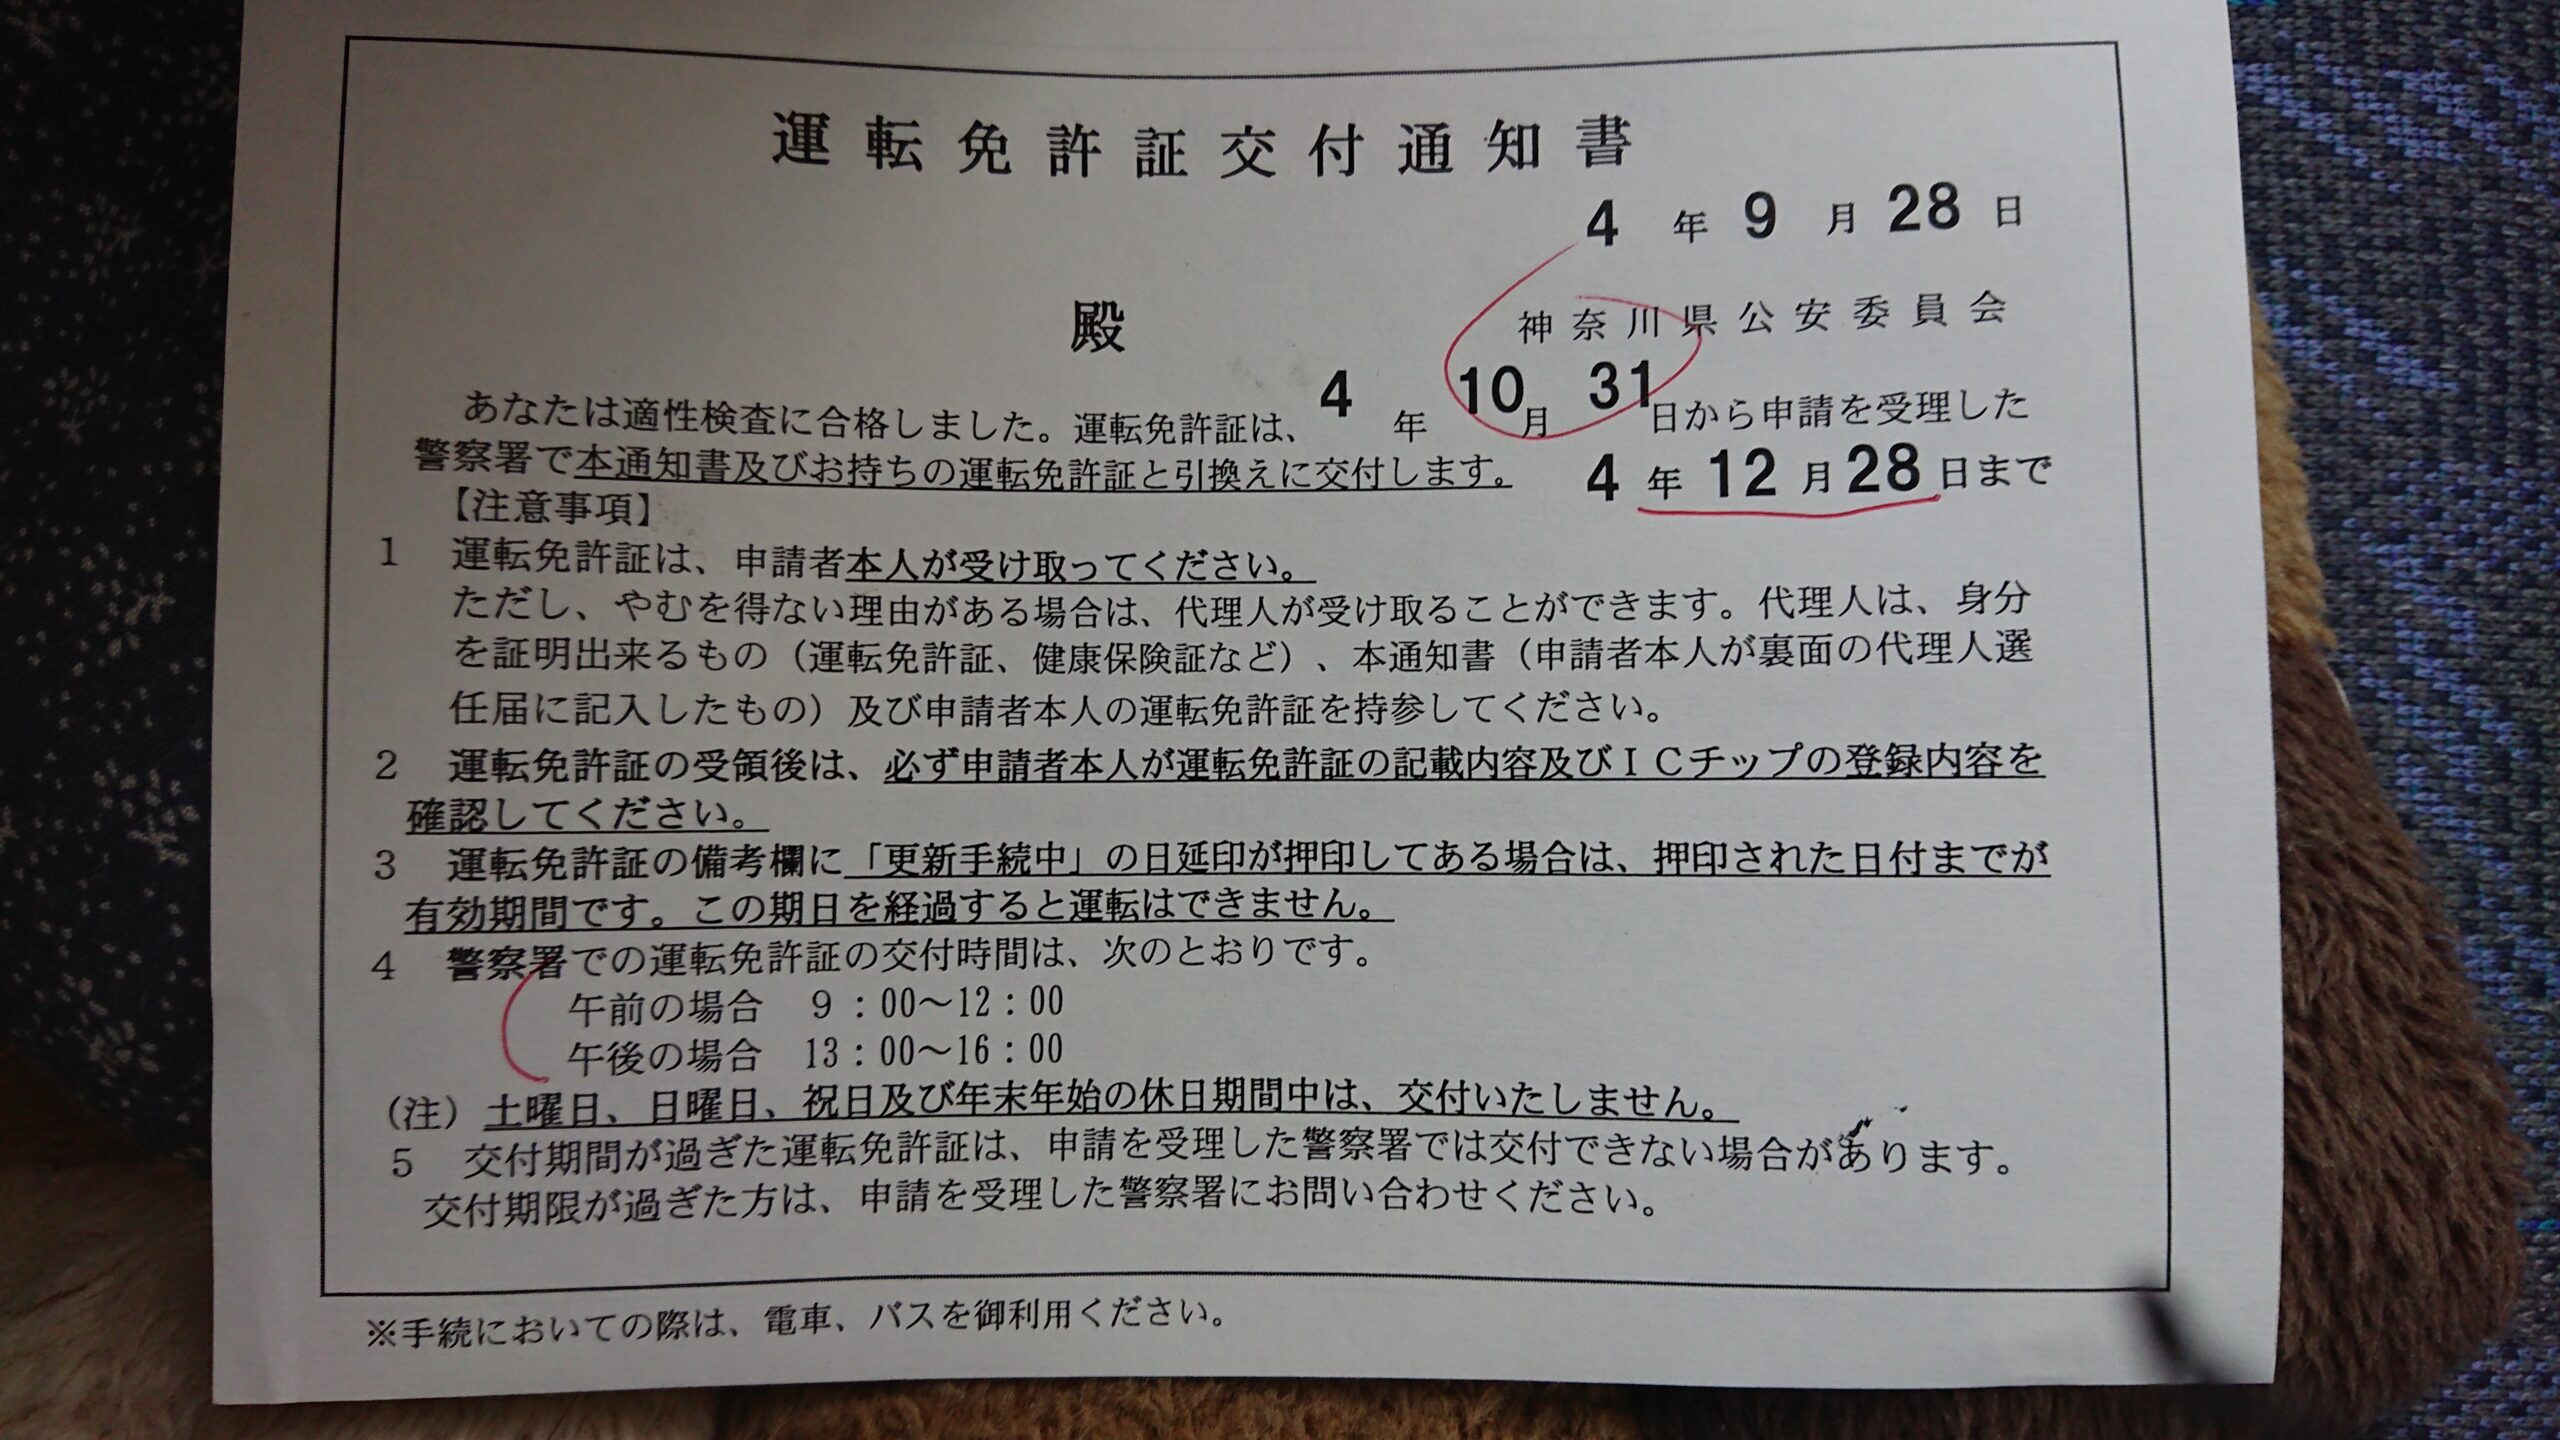 運転免許証交付通知書
4 年 9 月 28 日
神奈川県公安委員会
殿
あなたは適性検査に合格しました。運転免許証は、4 年 10 月 31 日から申請を受理した
警察署で本通知書及びお持ちの運転免許証と引換えに交付します。 4 年 12 月 28 日まで
【注意事項】
1 運転免許証は、申請者本人が受け取ってください。
ただし、やむを得ない理由がある場合は、代理人が受け取ることができます。代理人は、身分
を証明出来るもの（運転免許証、健康保険証など）、本通知書（申請者本人が裏面の代理人選
任届に記入したもの）及び申請者本人の運転免許証を持参してください。
2 運転免許証の受領後は、必ず申請者本人が運転免許証の記載内容及びＩＣチップの登録内容を
確認してください。
3 運転免許証の備考欄に「更新手続中」の日延印が押印してある場合は、押印された日付までが
有効期間です。この期日を経過すると運転はできません。
4 警察署での運転免許証の交付時間は、次のとおりです。
午前の場合 9：00～12：00
午後の場合 13：00～16：00
（注）土曜日、日曜日、祝日及び年末年始の休日期間中は、交付いたしません。
5 交付期間が過ぎた運転免許証は、申請を受理した警察署では交付できない場合があります。
交付期限が過ぎた方は、申請を受理した警察署にお問い合わせください。
※手続においての際は、電車、バスを御利用ください。